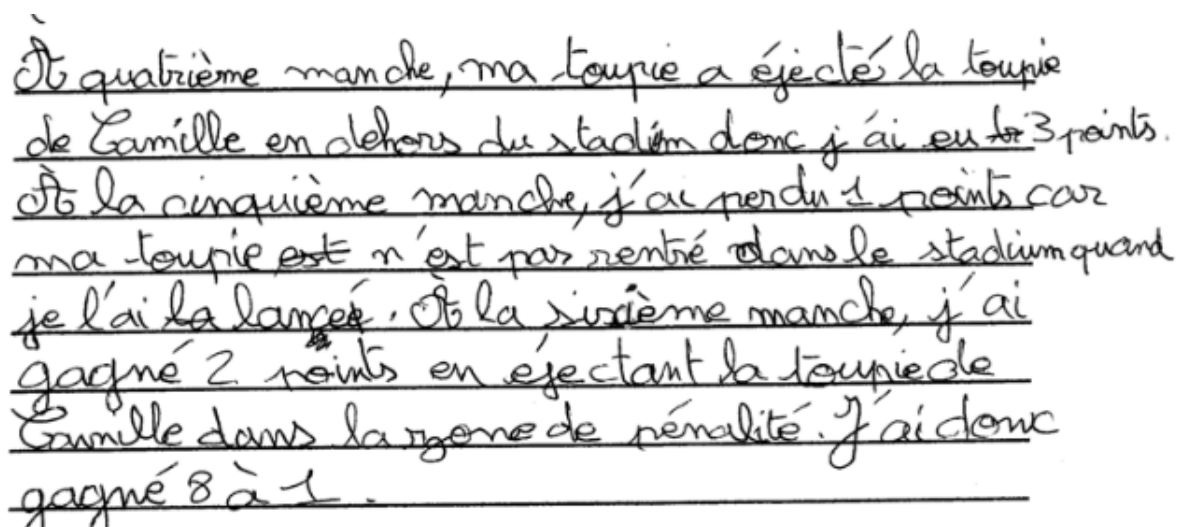 À quatrième manche, ma toupie a éjecté la toupie
de Camille en dehors du stadium donc j'ai eu 3 points.
À la cinquième manche, j'ai perdu 1 points car
ma toupie est n'est pas rentré dans le stadium quand
je l'ai la lancé. À la sixième manche, j'ai
gagné 2 points en éjectant la toupie de
Camille dans la zone de pénalité. J'ai donc
gagné 8 à 1.